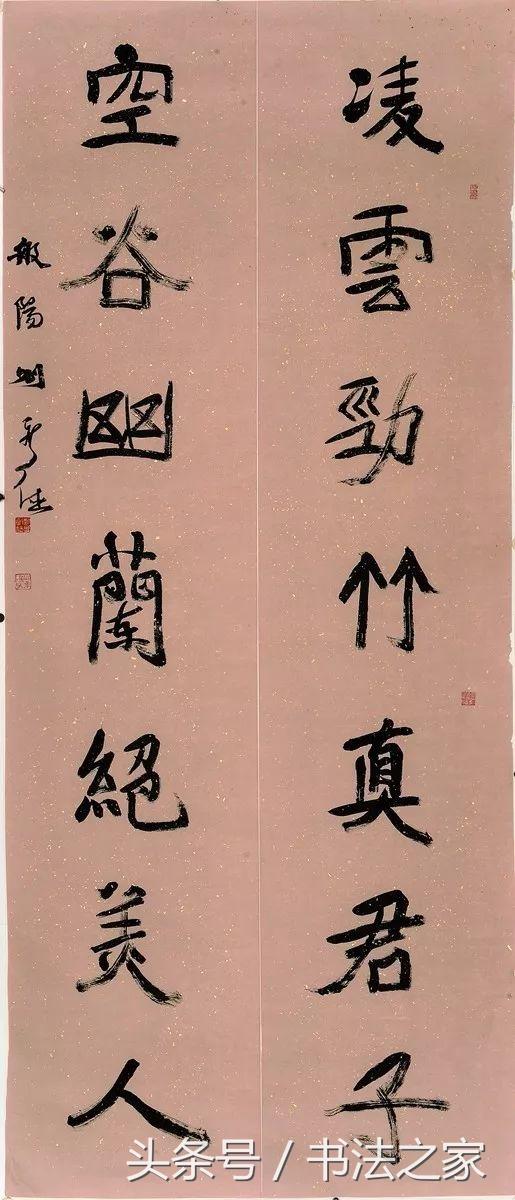 凌雲勁竹真君子
空谷幽蘭絶美人
般陽
头条号 / 书法之家